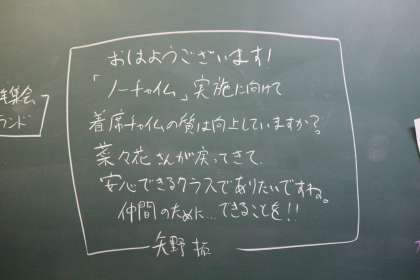 おはようございます!
「ノーチャイム」実施に向けて
着席チャイムの質は向上していますか?
菜々花さんが戻ってきて、
安心できるクラスでありたいですね。
仲間のために…できることを!!
矢野
集会
ランド